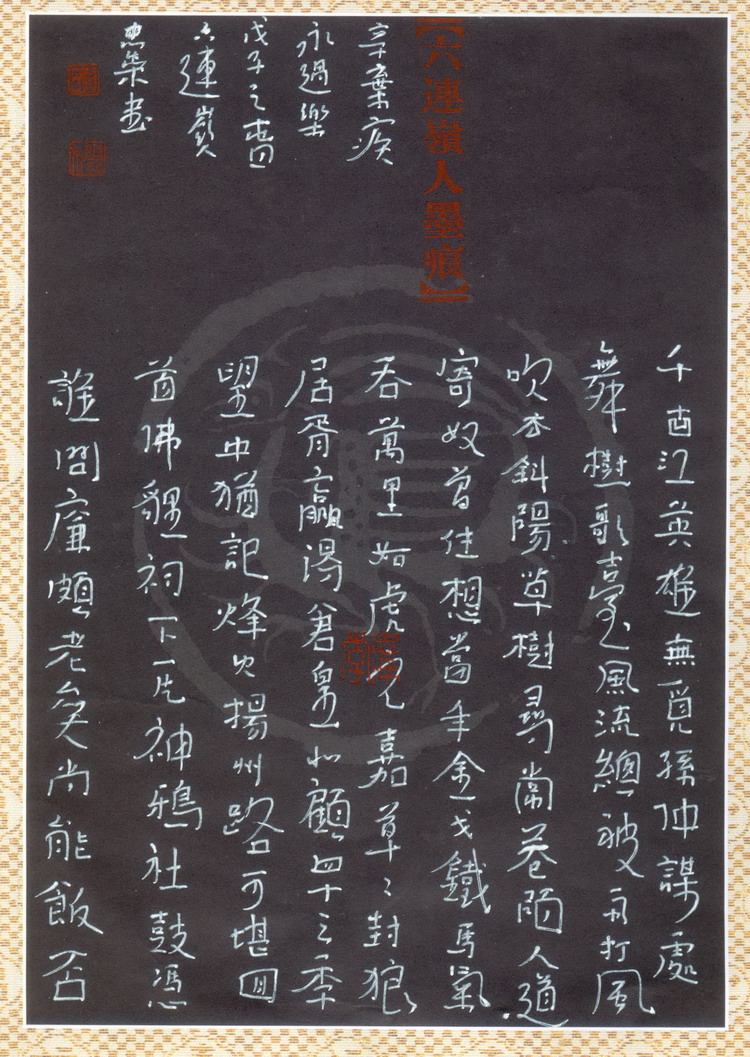 【六連嶺人墨痕】
千古江英雄無覓孫仲謀處
舞樹歌臺風流總被雨打風
吹去斜陽草樹尋常巷陌人道
寄奴曾住想當年金戈鐵馬氣
吞萬里如虎元嘉草〻封狼
居胥贏得倉皇北顧四十三年
望中猶記烽火揚州路可堪回
首佛貍祠下一片神鴉社鼓憑
誰問廉頗老矣尚能飯否
辛棄疾
永遇樂
戊子之春
六連嶺
榮書